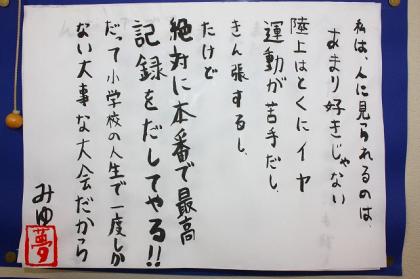 私は、人に見られるのは、
あまり好きじゃない
陸上はとくにイヤ
運動が苦手だし、
きん張するし、
たけど
絶対に本番で最高
記録をだしてやる!!
だって小学校の人生で一度しか
ない大事な大会だから
みゆ
夢